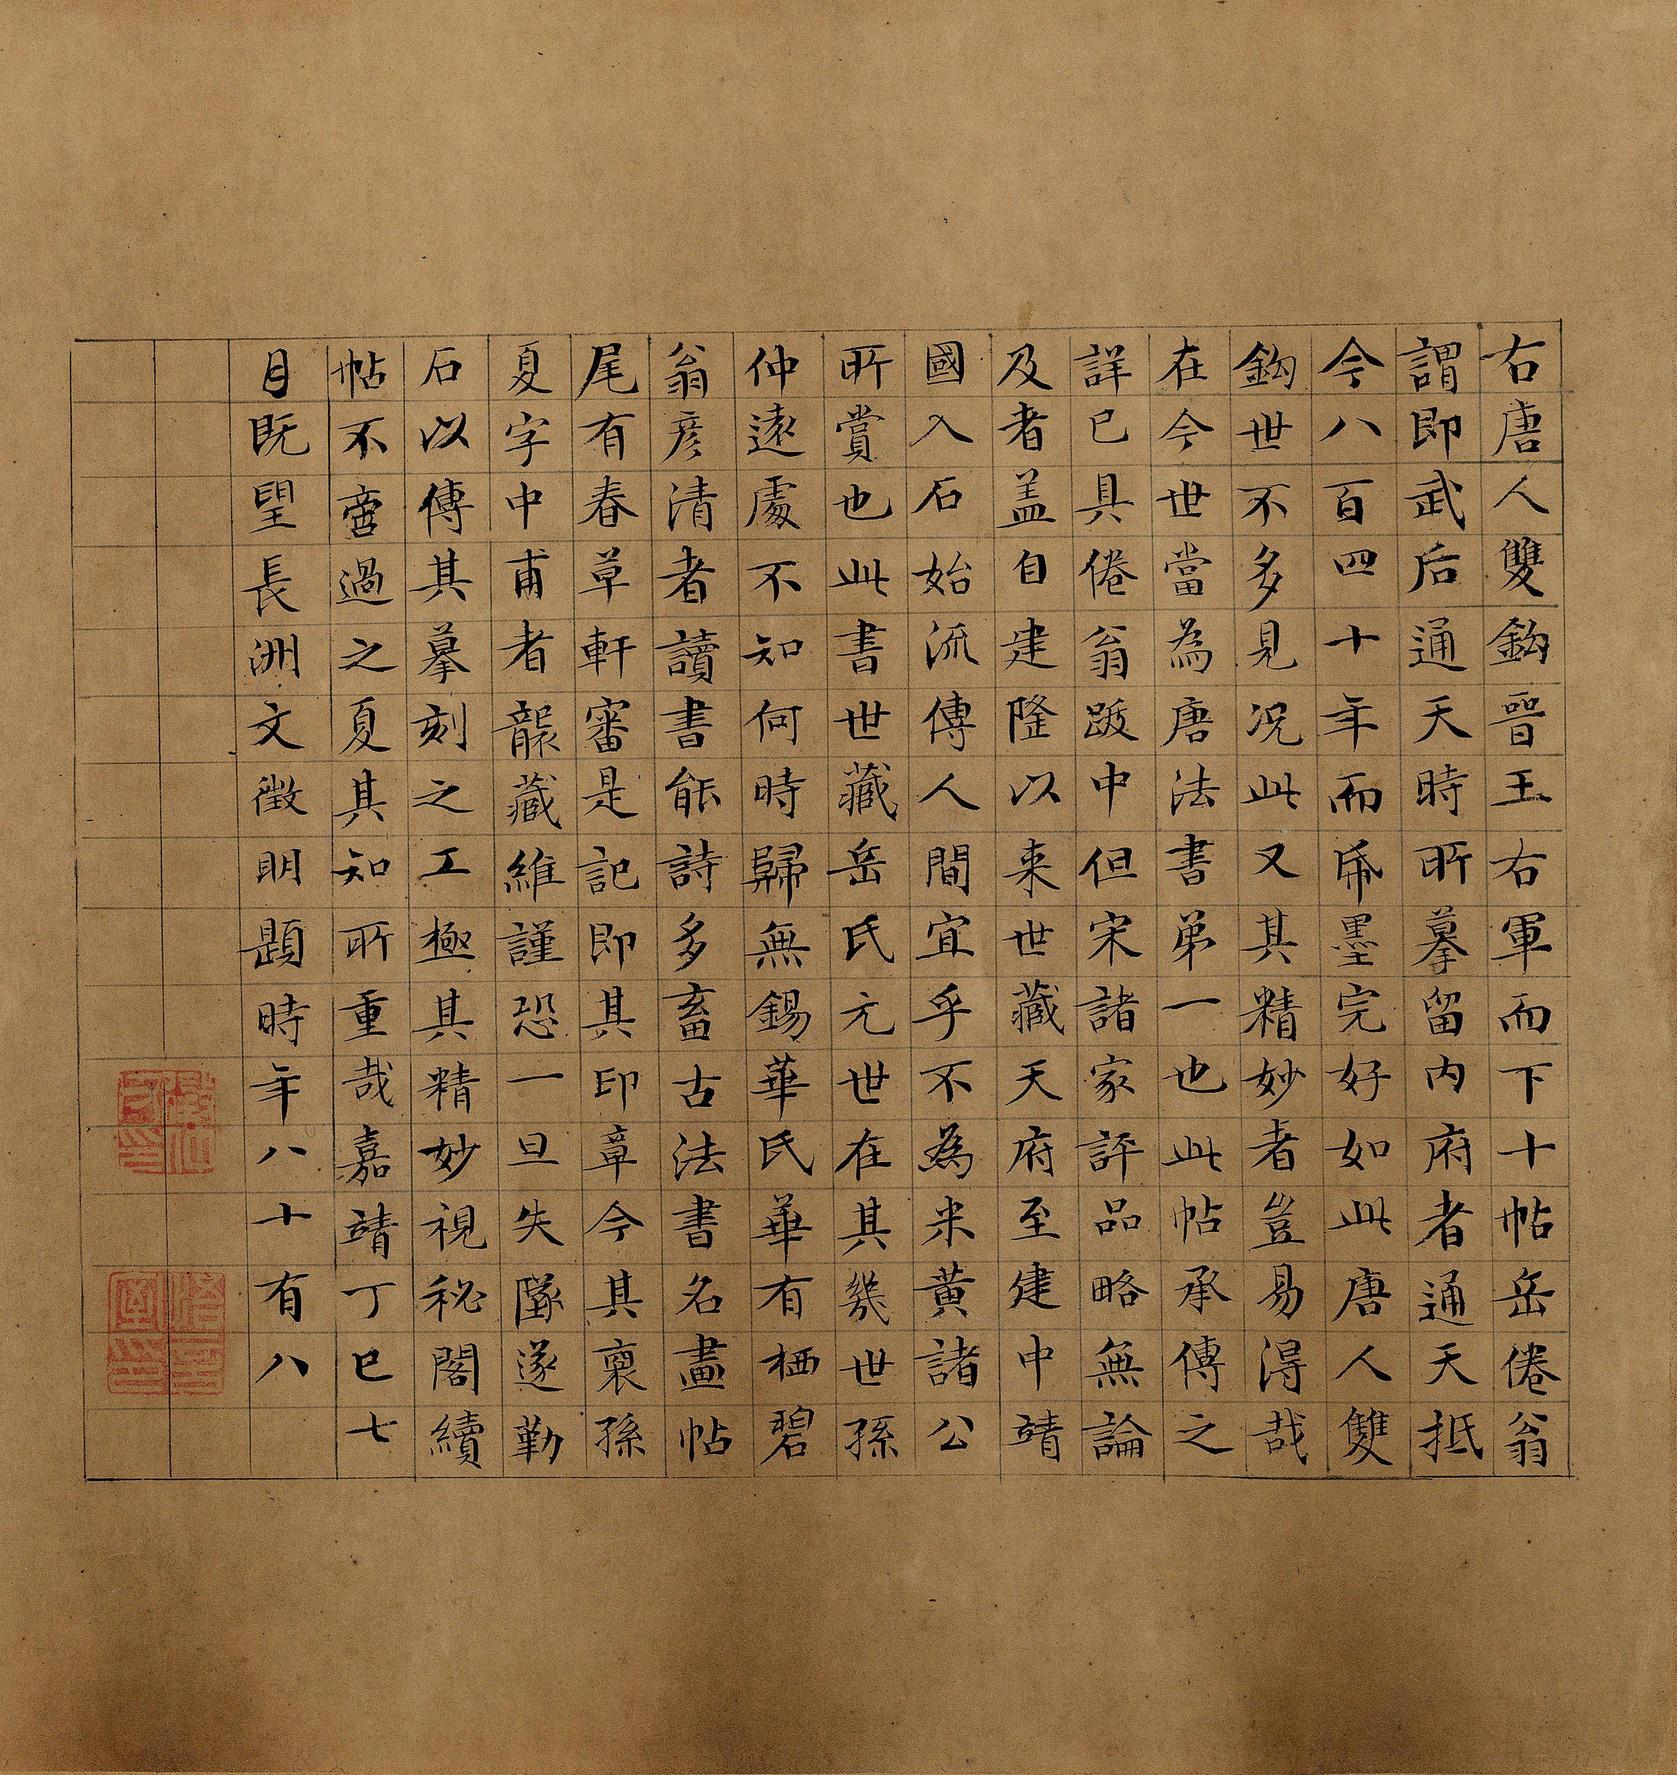 右唐人雙鈎晉王右軍而下十帖岳倦翁
謂即武后通天時所摹留內府者通天抵
今八百四十年而帋墨完好如此唐人雙
鈎世不多見況此又其精妙者豈易得哉
在今世當為唐法書第一也此帖承傳之
詳已具倦翁跋中但宋諸家評品略無論
及者盖自建隆以来世藏天府至建中靖
國入石始流傳人間宜乎不為米黃諸公
所賞也此書世藏岳氏元世在其幾世孫
仲遠處不知何時歸無錫華氏華有栖碧
翁彥清者讀書能詩多畜古法書名畫帖
尾有春草軒審是記即其印章今其裔孫
夏字中甫者襲藏維謹恐一旦失墜遂勒
石以傳其摹刻之工極其精妙視秘閣續
帖不啻過之夏其知所重哉嘉靖丁巳七
月既望長洲文徵明題時年八十有八